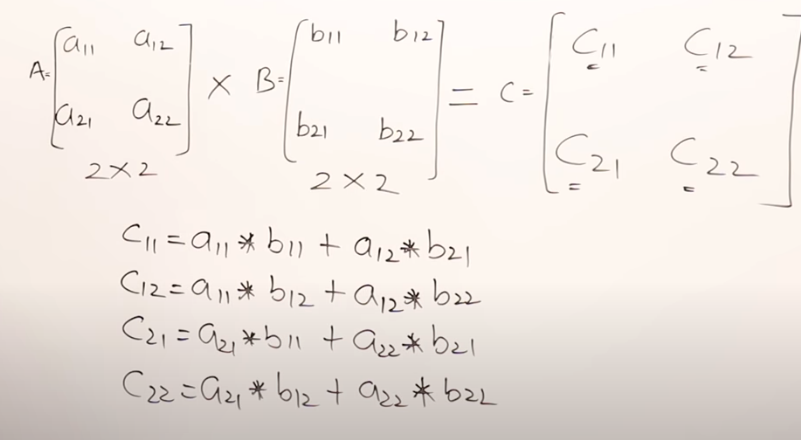 A= [a11 a12] × B= [b11 b12] = C= [C11 C12]
[a21 a22] [b21 b22] [C21 C22]
2×2 2×2
C11 = a11 * b11 + a12 * b21
C12 = a11 * b12 + a12 * b22
C21 = a21 * b11 + a22 * b21
C22 = a21 * b12 + a22 * b22